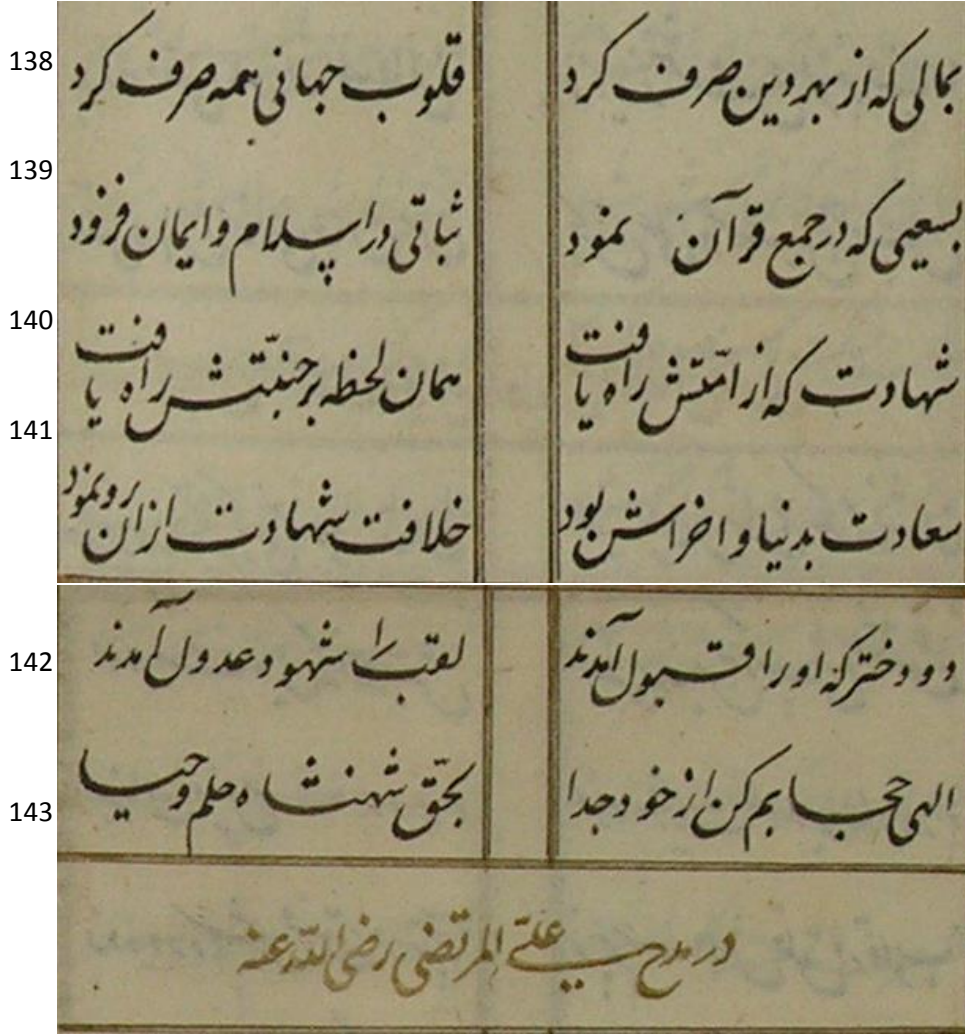 138 بمالی که از بهر دین صرف کرد قلوب جهانی همه صرف کرد
139 بسعیی که در جمع قرآن نمود ثباتی در اسلام و ایمان فزود
140 شهادت که از امّتش راه یافت همان لحظه بر جنّتش راه یافت
141 سعادت بدنیا و اخراش بود خلافت شهادت ازان رو نمود
142 دو دختر که او را قبول آمدند لقب را شهود عدول آمدند
143 الهی حجابم کن از خود جدا بحقّ شهنشاه حلم و حیا
در مدح علیّ المرتضی رضی اللّه عنه